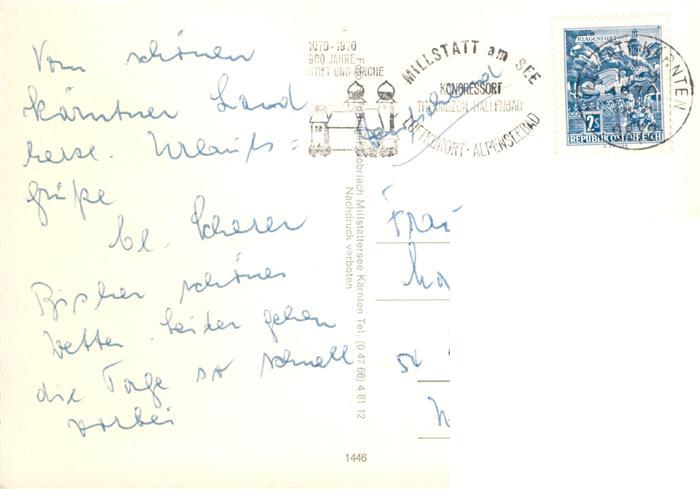 Vom schönen
Kärntner Land
herzl. Urlaubs=
grüße
Bisher schönes
Wetter. Leider gehen
die Tage so schnell
vorbei
1070 - 1970
900 JAHRE
STIFT UND KIRCHE
MILLSTATT am SEE
KONGRESSORT
HALLENBAD
LUFTKURORT · ALPENSEEBAD
Deutschland
KLAGENFURT
2S
REPUBLIK ÖSTERREICH
KÄRNTEN
Döbriach Millstättersee Kärnten Tel. (0 47 66) 4 81 12
Nachdruck verboten
Frau
1446